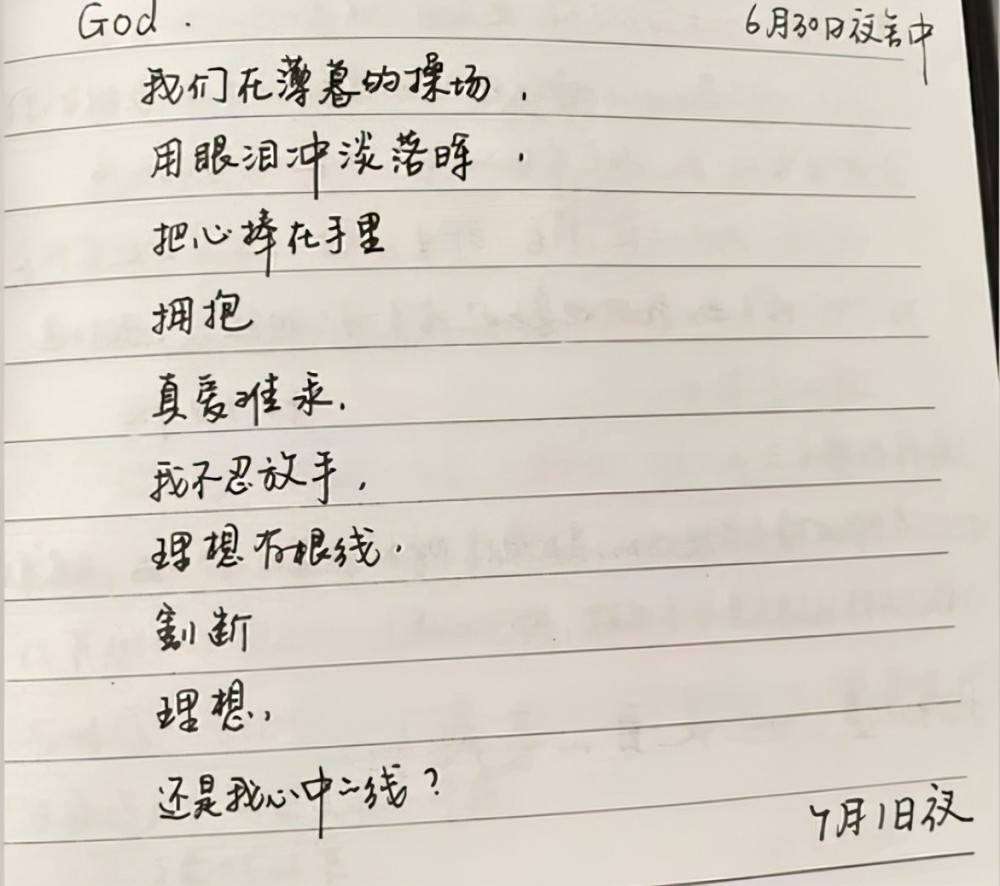 God.
6月30日夜舍中
我们在薄暮的操场，
用眼泪冲淡落晖，
把心捧在手里
拥抱
真爱难永，
我不忍放手，
理想有根线，
割断
理想，
还是我心中之线？
7月1日夜